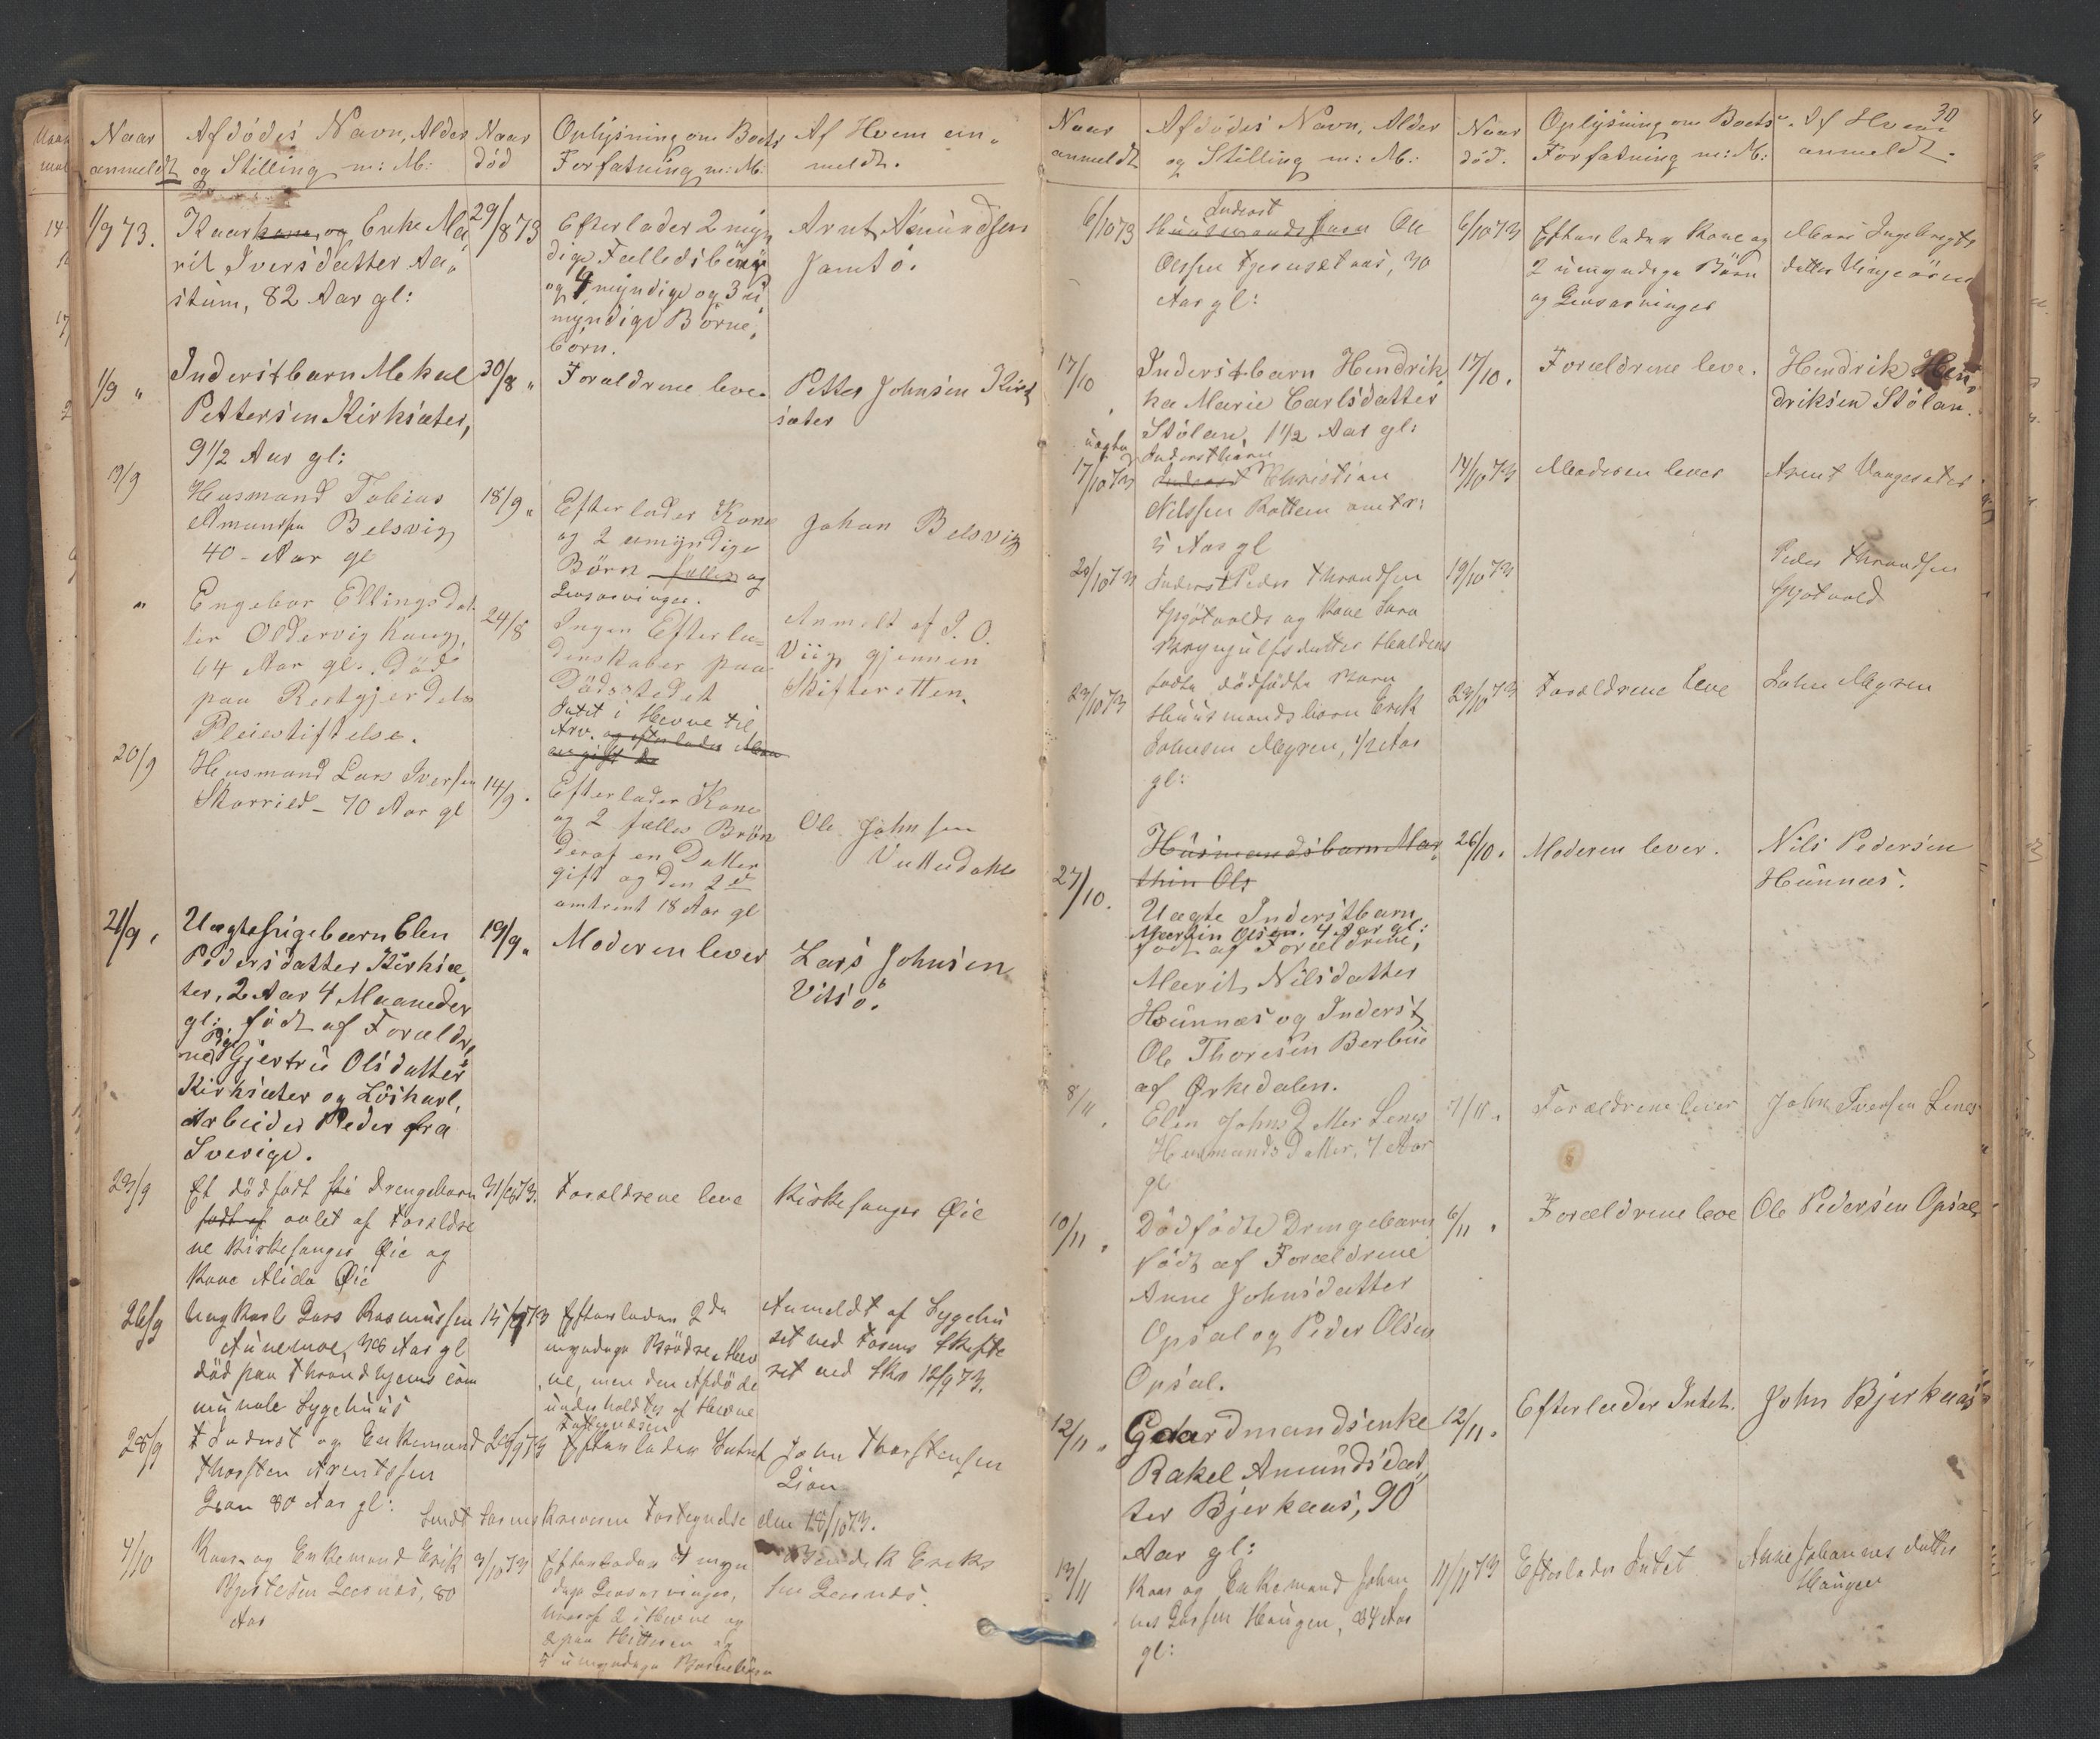 Naar
anmeldt
Afdödes Navn, Alder
og Stilling m: M:
Naar
död
Oplysning om Boets
Forfatning m: M:
Af Hvem an-
meldt.
1/9 73.
Kaarkone, og Enke Ma-
rit Iversdatter Aa-
stum, 82 Aar gl:
29/8 73
Efterlader 2 myn
dige Fælledsbörn
og 4 myndige og 3 u-
myndige Börne-
börn.
Arnt Amundsen
Jamtö.
1/9 "
Inderstbarn Mekal
Pettersen Kirksæter,
9 1/2 Aar gl:
30/8 "
Forældrene leve
Petter Johnsen Kirk
sæter
19/9
Husmand Tobias
Amundsen Belsvig
40 - Aar gl
18/9 "
Efterlader Kone
og 2 umyndige
Börn fælles og
Livsarvinger.
Johan Belsvig
"
Engebor Ellingsdat-
ter Oldervig
64 Aar gl. Död
paa Reitgjerdets
Pleiestiftelse.
24/8
Ingen Efterla-
denskaber paa
Dödsstedet
Intet i Hevne til
Arv. og efterlader
Anmeldt af J. O.
Viig gjennem
Skifteretten.
20/9
Husmand Lars Iversen
Skarrild - 70 Aar gl
14/9.
Efterlader Kone
og 2 fælles Brön
deraf en Datter
gift og den 2de
omtrent 18 Aar gl
Ole Johnsen
Vuttudahl
21/9,
Uægtepigebarn Elen
Pedersdatter Kirksæ-
ter, 2 Aar 4 Maaneder
gl: födt af Forældre-
ne Pige Gjertru Olsdatter
Kirksæter og Löskarl,
Arbeider Peder fra
Sverige.
19/9 "
Moderen lever
Lars Johnsen
Vitsö.
23/9
Et dödfödt Drengebarn
födt af avlet af Forældre
ne Kirkesanger Øie og
Kone Alida Øie
31/8 73.
Forældrene leve
Kirkesanger Øie
26/9
Ungkarl Lars Rasmussen
Aunemoe, 38 Aar gl
död paa Throndhjems Com
munale Sygehuus
15/9 73
Efterlader 2de
myndige Brödre i Hev
ne, men den Afdöde
underholdtes af Hevne
Fattigvæsen
Anmeldt af Sygehu
set ved Byens Skifte
ret ved Skr 18/9 73.
28/9
Inderst og Enkemand
Thorsten Arentsen
Lian 80 Aar gl:
28/9 73
Efterlader Intet
John Thorstensen
Lian
Sendt den 18/10 73.
4/10
Kaar- og Enkemand Erik
Geernes, 80
Aar
3/10 73
Efterlader 4 myn
dige Livsarvinger,
hvoraf 2 i Hevne og
2 paa Hitteren og
5 umyndige Börnebörn
Bendik Eriks
sen Geernes.
30
Naar
anmeldt
Afdödes Navn, Alder
og Stilling m: M:
Naar
död.
Oplysning om Boets
Forfatning m: M:
Af Hvem
anmeldt.
6/10 73
Inderst
Huusmands Ole
Olsen 30
Aar gl:
6/10 73
Efterlader Kone og
2 umyndige Börn
og Livsarvinger
Mari Ingebrigts
datter Vingeören
17/10
Inderstbarn Hendrik-
ka Marie Carlsdatter
Stölan, 1 1/2 Aar gl:
17/10.
Forældrene leve.
Hendrik Hen-
driksen Stölan.
17/10 73
uægte
Inderstbarn
Inderst Christian
Nilssen Rottem omtr:
5 Aar gl
14/10 73
Moderen lever
Arent Vangesæter
20/10 73
Inderst Peder Throndsen
Gjøtvolds og Kone Sara
Brynjulfsdatter
födte dödfödte Barn
19/10 73
Peder Throndsen
Gjøtvold
23/10 73
Huusmandsbarn Erik
Johnsen Myren, 1/2 Aar
gl:
23/10 73
Forældrene leve
John Myren
27/10.
Husmandsbarn Mar-
thin Ols
Uægte Inderstbarn
Marthin Olsen. 4 Aar gl:
födt af Forældrene,
Marit Nilsdatter
Hunnæs og Inderst
Ole Thoresen Berbue
af Ørkedalen.
26/10.
Moderen lever.
Nils Pedersen
Hunnæs.
8/11
Elen JohnsDatter Lenes
HusmandsDatter, 7 Aar
gl
7/11.
Forældrene lever
John Iversen Lenes
10/11,
Dödfödte Drengebarn
Födt af Forældrene
Anne Johnsdatter
Opsal og Peder Olsen
Opsal.
6/11,
Forældrene leve
Ole Pedersen Opsal
12/11 "
Gaardmandsenke
Rakel Amundsdat-
ter Bjerkaas, 90
Aar gl:
12/11.
Efterlader Intet.
John Bjerkaas
13/11
Kaar og Enkemand Johan
nes Larsen Haugen, 84 Aar
gl:
11/11 73
Efterlader Intet
Anne Johannesdatter
Haugen